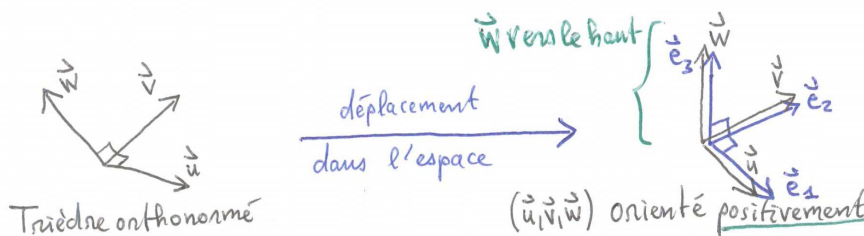 w⃗ v⃗
u⃗
Trièdre orthonormé
déplacement
dans l'espace
w⃗ vers le haut
e⃗₃ w⃗
v⃗
e⃗₂
u⃗
e⃗₁
(u⃗,v⃗,w⃗) orienté positivement